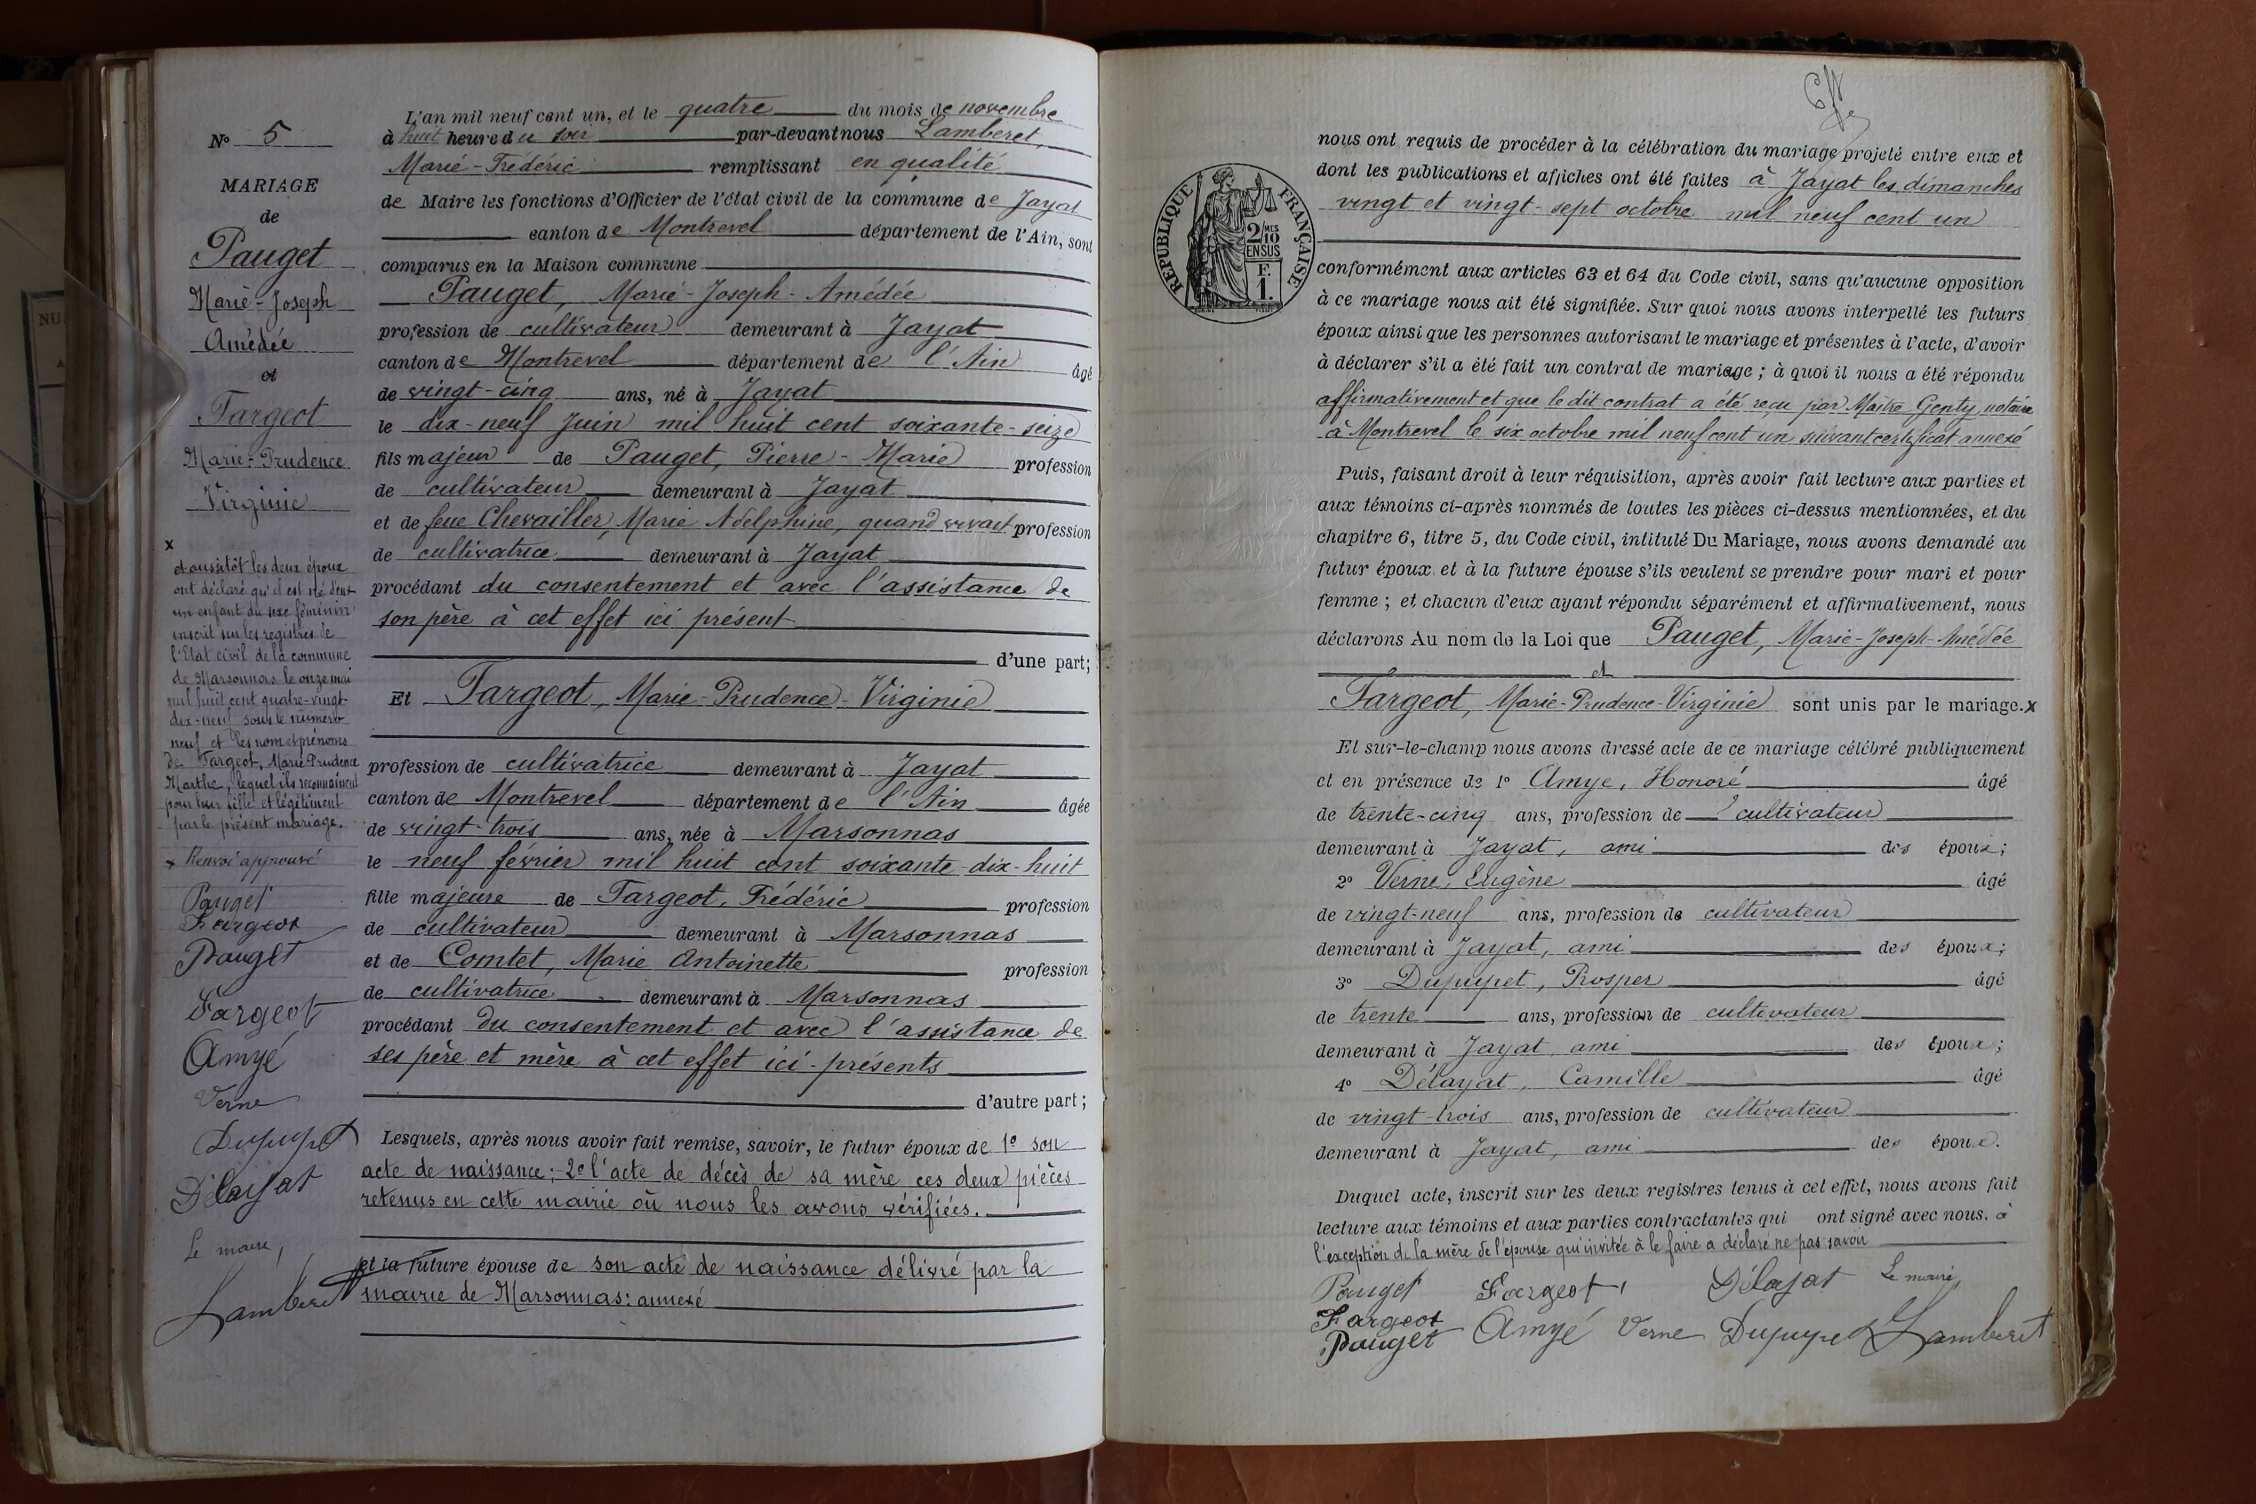 N° 5
MARIAGE
de
Pauget
Marie-Joseph
Amédée
et
Fargeot
Marie-Prudence
Virginie
x
et aussitôt les deux époux
ont déclaré qu'il est né d'eux
un enfant du sexe féminin
inscrit sur les registres de
l'Etat civil de la commune
de Marsonnas le onze mai
mil huit cent quatre-vingt-
dix-neuf sous le numéro
neuf et les nom et prénoms
de Fargeot, Marie Prudence
Marthe, lequel ils reconnaissent
pour leur fille et légitiment
par le présent mariage.
x Renvoi approuvé
Pauget
Fargeot
Pauget
Fargeot
Amyé
Verne
Dupupet
Délayat
Le maire,
Lamberet
L'an mil neuf cent un, et le quatre du mois de novembre
à huit heure du soir par-devant nous Lamberet,
Marie-Frédéric remplissant en qualité
de Maire les fonctions d'Officier de l'état civil de la commune de Jayat
canton de Montrevel département de l'Ain, sont
comparus en la Maison commune
Pauget, Marie-Joseph-Amédée
profession de cultivateur demeurant à Jayat
canton de Montrevel département de l'Ain âgé
de vingt-cinq ans, né à Jayat
le dix-neuf Juin mil huit cent soixante-seize
fils majeur de Pauget, Pierre-Marie profession
de cultivateur demeurant à Jayat
et de feue Chevailler, Marie Adelphine, quand vivait profession
de cultivatrice demeurant à Jayat
procédant du consentement et avec l'assistance de
son père à cet effet ici présent
d'une part;
Et Fargeot, Marie-Prudence-Virginie
profession de cultivatrice demeurant à Jayat
canton de Montrevel département de l'Ain âgée
de vingt-trois ans, née à Marsonnas
le neuf février mil huit cent soixante-dix-huit
fille majeure de Fargeot, Frédéric profession
de cultivateur demeurant à Marsonnas
et de Comtet, Marie Antoinette profession
de cultivatrice demeurant à Marsonnas
procédant du consentement et avec l'assistance de
ses père et mère à cet effet ici-présents
d'autre part;
Lesquels, après nous avoir fait remise, savoir, le futur époux de 1° son
acte de naissance; 2° l'acte de décès de sa mère ces deux pièces
retenus en cette mairie où nous les avons vérifiées.
et la future épouse de son acte de naissance délivré par la
mairie de Marsonnas: annexé
REPUBLIQUE FRANÇAISE
2/10 MES
EN SUS
F.
1.
nous ont requis de procéder à la célébration du mariage projeté entre eux et
dont les publications et affiches ont été faites à Jayat les dimanches
vingt et vingt-sept octobre mil neuf cent un
conformément aux articles 63 et 64 du Code civil, sans qu'aucune opposition
à ce mariage nous ait été signifiée. Sur quoi nous avons interpellé les futurs
époux ainsi que les personnes autorisant le mariage et présentes à l'acte, d'avoir
à déclarer s'il a été fait un contrat de mariage; à quoi il nous a été répondu
affirmativement et que le dit contrat a été reçu par Maître Genty, notaire
à Montrevel le six octobre mil neuf cent un suivant certificat annexé
Puis, faisant droit à leur réquisition, après avoir fait lecture aux parties et
aux témoins ci-après nommés de toutes les pièces ci-dessus mentionnées, et du
chapitre 6, titre 5, du Code civil, intitulé Du Mariage, nous avons demandé au
futur époux et à la future épouse s'ils veulent se prendre pour mari et pour
femme; et chacun d'eux ayant répondu séparément et affirmativement, nous
déclarons Au nom de la Loi que Pauget, Marie-Joseph-Amédée
et
Fargeot, Marie-Prudence-Virginie sont unis par le mariage. x
Et sur-le-champ nous avons dressé acte de ce mariage célébré publiquement
et en présence de 1° Amye, Honoré âgé
de trente-cinq ans, profession de cultivateur
demeurant à Jayat, ami des époux;
2° Verne, Eugène âgé
de vingt-neuf ans, profession de cultivateur
demeurant à Jayat, ami des époux;
3° Dupupet, Prosper âgé
de trente ans, profession de cultivateur
demeurant à Jayat, ami des époux;
4° Délayat, Camille âgé
de vingt-trois ans, profession de cultivateur
demeurant à Jayat, ami des époux.
Duquel acte, inscrit sur les deux registres tenus à cet effet, nous avons fait
lecture aux témoins et aux parties contractantes qui ont signé avec nous. à
l'exception de la mère de l'épouse qui invitée à le faire a déclaré ne pas savoir
Pauget Fargeot Délayat Le maire,
Fargeot
Pauget Amyé Verne Dupupet Lamberet